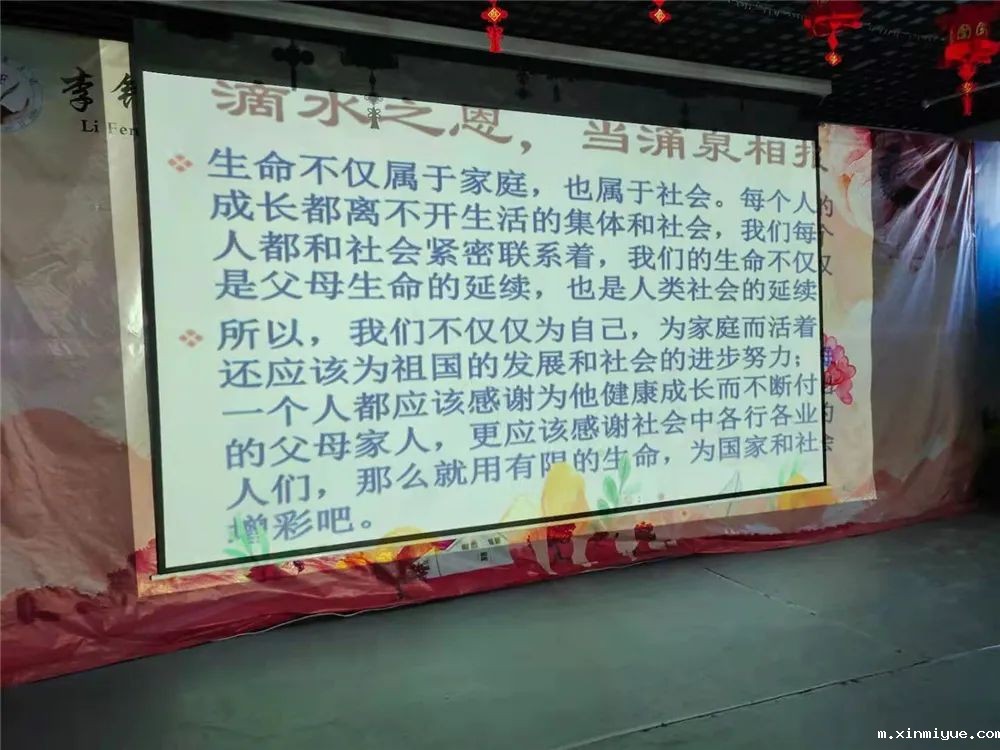 李
Li Fen
滴水之恩，当涌泉相报
生命不仅属于家庭，也属于社会。每个人的
成长都离不开生活的集体和社会，我们每个
人都和社会紧密联系着，我们的生命不仅仅
是父母生命的延续，也是人类社会的延续
所以，我们不仅仅为自己，为家庭而活着
还应该为祖国的发展和社会的进步努力；
一个人都应该感谢为他健康成长而不断付出
的父母家人，更应该感谢社会中各行各业的
人们，那么就用有限的生命，为国家和社会
增彩吧。
m.xinmiyue.com